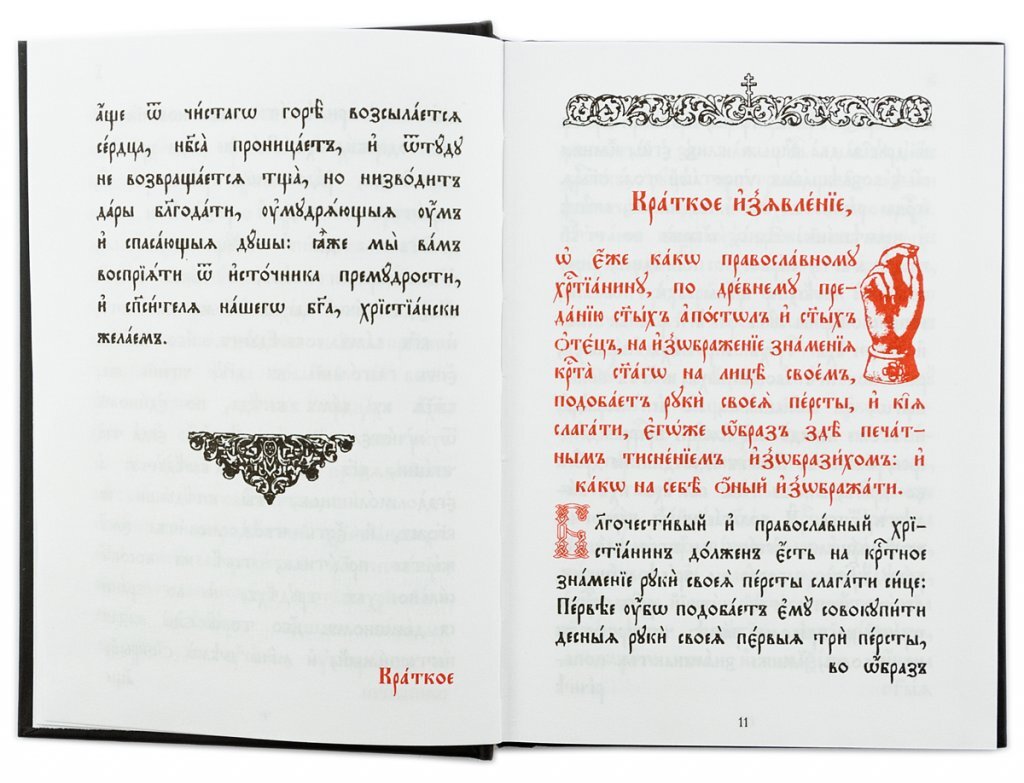 а҆́ще ѿ чи́стагѡ горѣ̀ возсыла́етсѧ
се́рдца, нб҃са̀ проница́етъ, и҆ ѿтꙋ́дꙋ
не возвраща́етсѧ тща̀, но низво́дитъ
да́ры блг҃ода́ти, ᲂу҆мꙋдрѧ́ющыѧ ᲂу҆́мъ
и҆ спаса́ющыѧ дꙋ́шы: ꙗ҆̀же мы̀ ва́мъ
воспрїѧ́ти ѿ и҆сто́чника премꙋ́дрости,
и҆ сп҃си́телѧ на́шегѡ бг҃а, хрїстїа́нски
жела́емъ.
Кра́ткое
Кра́ткое и҆з̾ѧвле́нїе,
ѡ҆ є҆́же ка́кѡ правосла́вномꙋ
хрⷭ҇тїа́нинꙋ, по дре́внемꙋ пре-
да́нїю ст҃ы́хъ а҆по́столъ и҆ ст҃ы́хъ
ѻ҆те́цъ, на и҆з̾ѡбраже́нїе зна́менїѧ
крⷭ҇та̀ ст҃а́гѡ на лицѣ̀ свое́мъ,
подоба́етъ рꙋкѝ своеѧ̀ пе́рсты, и҆ кі̑ѧ
слага́ти, є҆гѡ́же ѡ҆́бразъ здѣ̀ печа́т-
нымъ тисне́нїемъ и҆з̾ѡбрази́хомъ: и҆
ка́кѡ на себѣ̀ ѻ҆́ный и҆з̾ѡбража́ти.
Бл҃гочести́вый и҆ правосла́вный хрї-
стїа́нинъ до́лженъ є҆́сть на крⷭ҇тное
зна́менїе рꙋкѝ своеѧ̀ пе́рсты слага́ти си́це:
Пе́рвѣе ᲂу҆́бѡ подоба́етъ є҆мꙋ̀ совокꙋпи́ти
десны́ѧ рꙋкѝ своеѧ̀ пє́рвыѧ трѝ пе́рсты,
во ѡ҆́бразъ
11